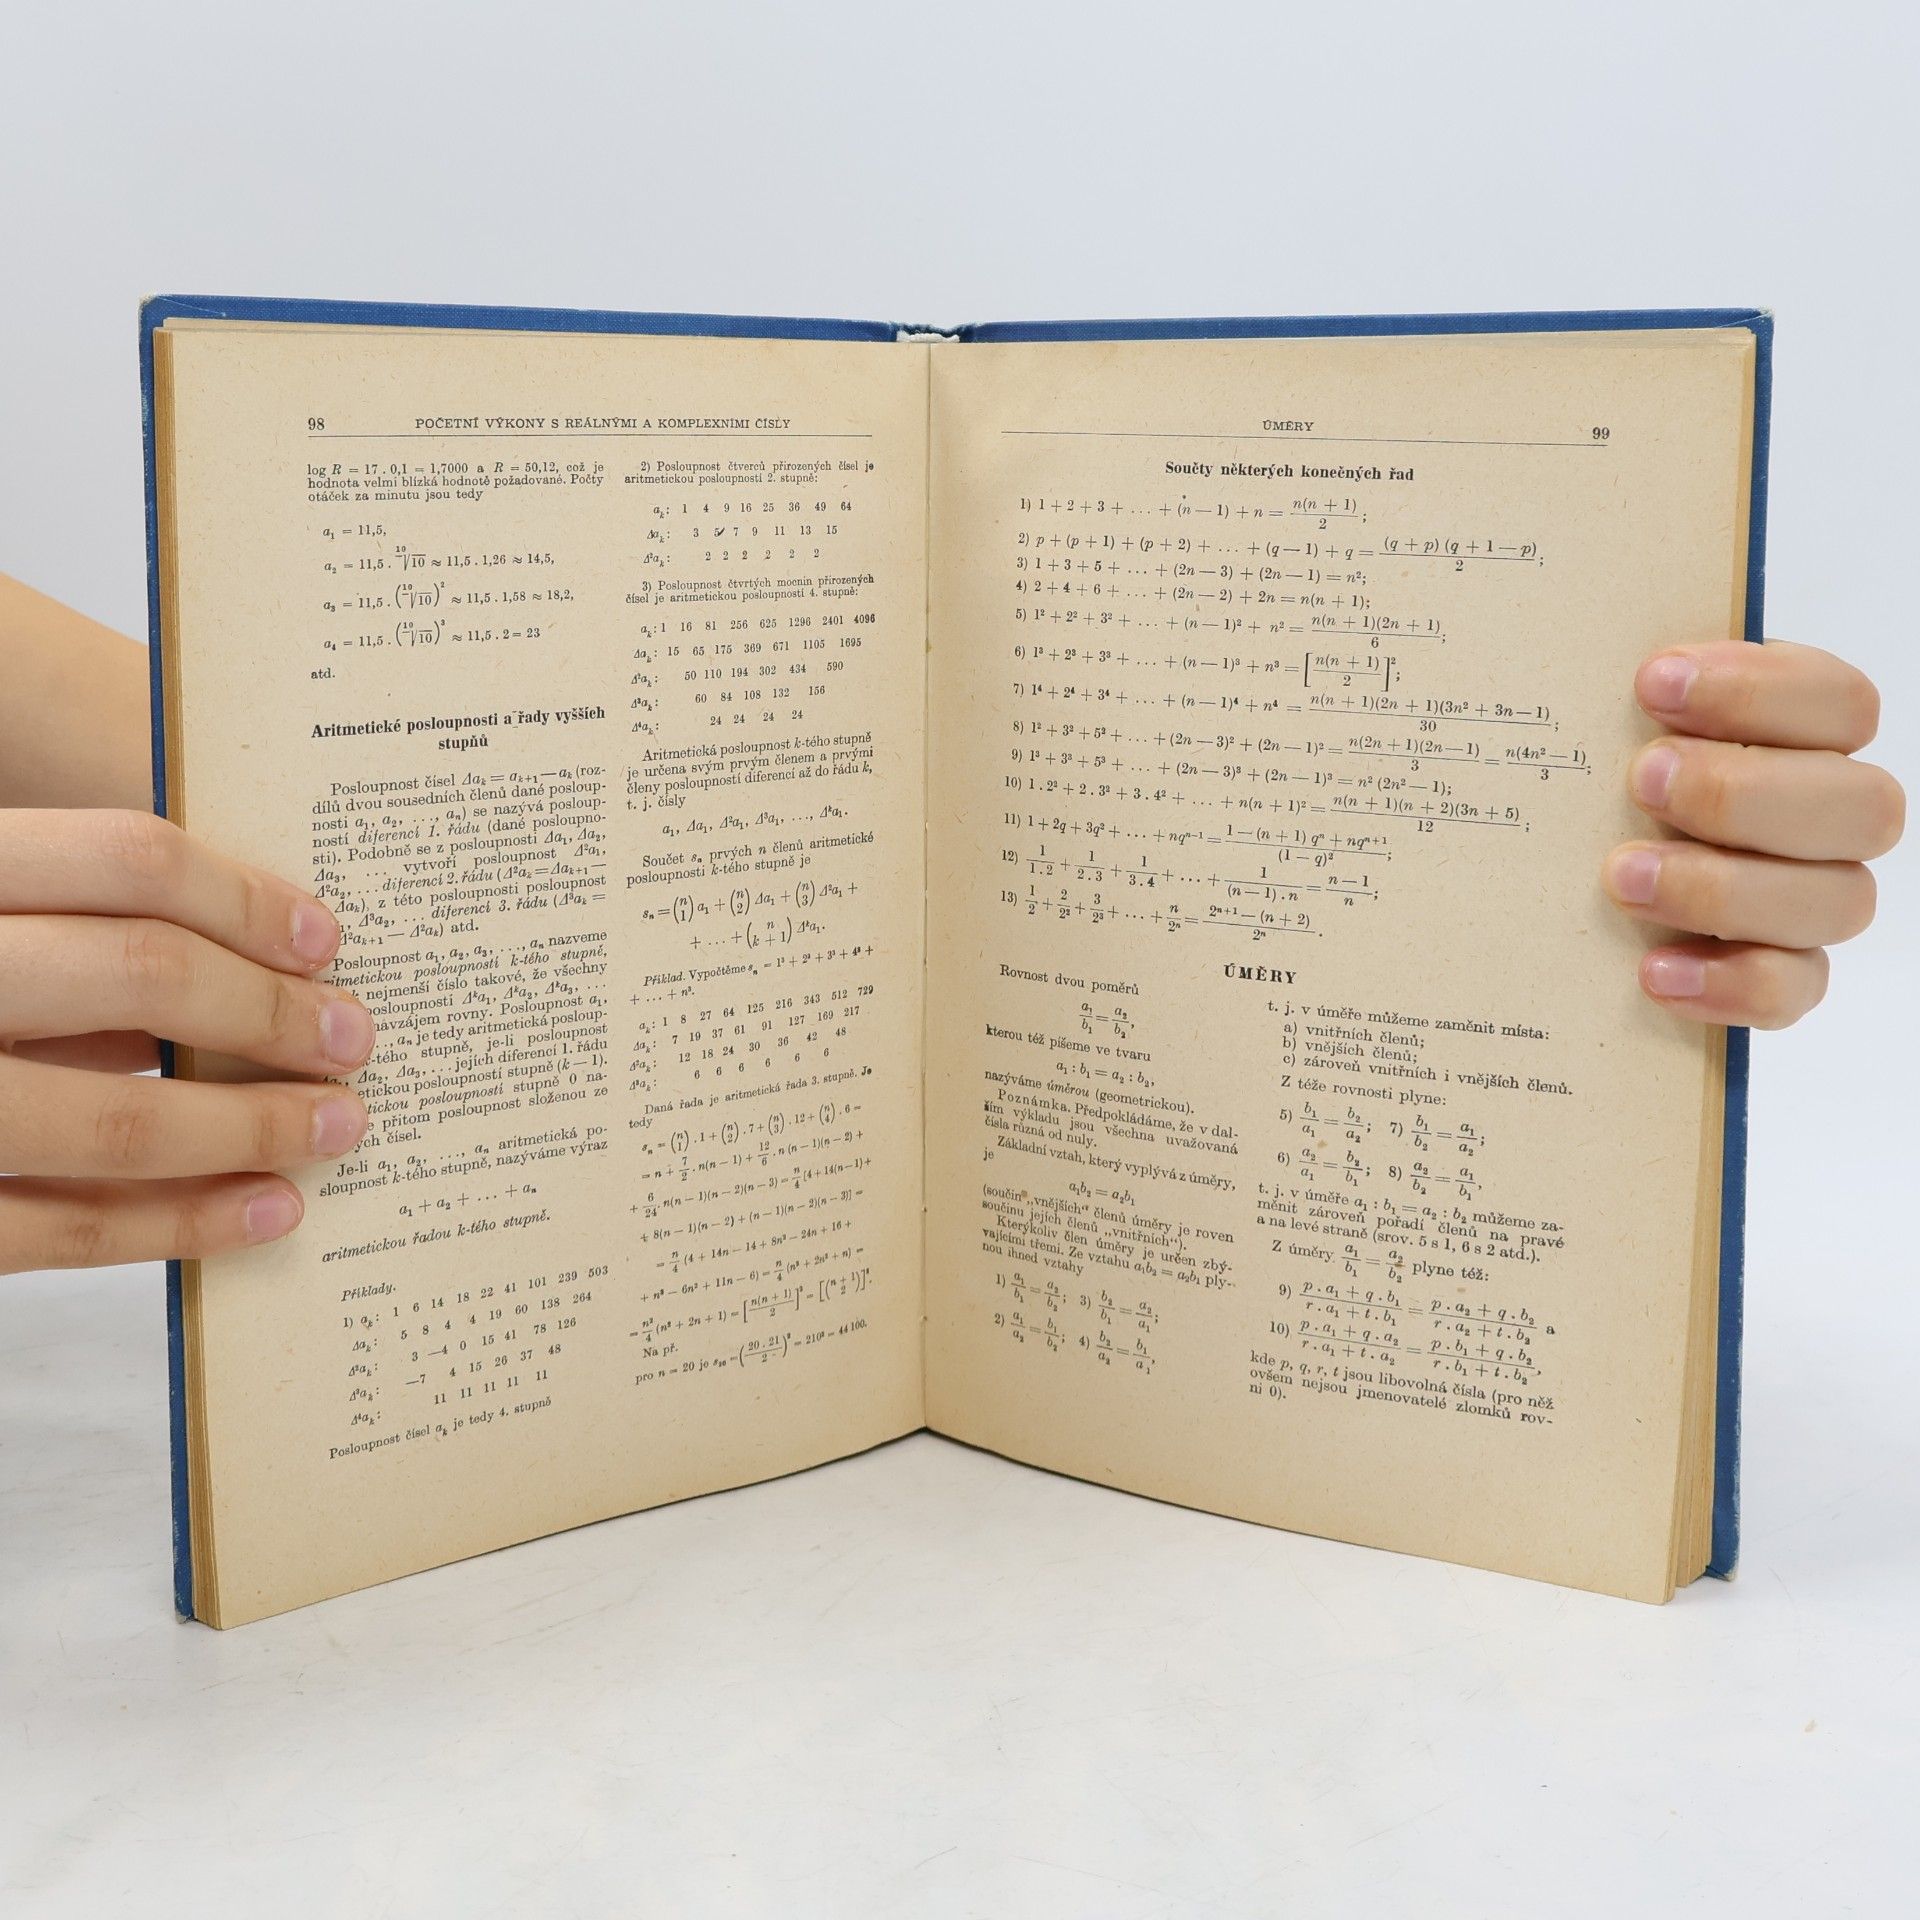 98 POČETNÍ VÝKONY S REÁLNÝMI A KOMPLEXNÍMI ČÍSLY
log R = 17 . 0,1 = 1,7000 a R = 50,12, což je
hodnota velmi blízká hodnotě požadované. Počty
otáček za minutu jsou tedy
a₁ = 11,5,
a₂ = 11,5 . ¹⁰√10 ≈ 11,5 . 1,26 ≈ 14,5,
a₃ = 11,5 . (¹⁰√10)² ≈ 11,5 . 1,58 ≈ 18,2,
a₄ = 11,5 . (¹⁰√10)³ ≈ 11,5 . 2 = 23
atd.
Aritmetické posloupnosti a řady vyšších
stupňů
Posloupnost čísel Δaₖ = aₖ₊₁ — aₖ (roz-
dílů dvou sousedních členů dané posloup-
nosti a₁, a₂, ..., aₙ) se nazývá posloup-
ností diferencí 1. řádu (dané posloupno-
sti). Podobně se z posloupnosti Δa₁, Δa₂,
Δa₃, ... vytvoří posloupnost Δ²a₁,
Δ²a₂, ... diferencí 2. řádu (Δ²aₖ = Δaₖ₊₁ —
Δaₖ), z této posloupnosti posloupnost
Δ³a₂, ... diferencí 3. řádu (Δ³aₖ =
Δ²aₖ₊₁ — Δ²aₖ) atd.
Posloupnost a₁, a₂, a₃, ..., aₙ nazveme
posloupností k-tého stupně,
nejmenší číslo takové, že všechny
posloupnosti Δᵏa₁, Δᵏa₂, Δᵏa₃, ...
navzájem rovny. Posloupnost a₁,
..., aₙ je tedy aritmetická posloup-
k-tého stupně, je-li posloupnost
Δa₂, Δa₃, ... jejích diferencí 1. řádu
posloupností stupně (k — 1).
posloupností stupně 0 na-
přitom posloupnost složenou ze
čísel.
Je-li a₁, a₂, ..., aₙ aritmetická po-
sloupnost k-tého stupně, nazýváme výraz
a₁ + a₂ + ... + aₙ
aritmetickou řadou k-tého stupně.
Příklady.
1) aₖ: 1 6 14 18 22 41 101 239 503
Δaₖ: 5 8 4 4 19 60 138 264
Δ²aₖ: 3 —4 0 15 41 78 126
Δ³aₖ: —7 4 15 26 37 48
Δ⁴aₖ: 11 11 11 11 11
Posloupnost čísel aₖ je tedy 4. stupně
2) Posloupnost čtverců přirozených čísel je
aritmetickou posloupností 2. stupně:
aₖ: 1 4 9 16 25 36 49 64
Δaₖ: 3 5 7 9 11 13 15
Δ²aₖ: 2 2 2 2 2 2
3) Posloupnost čtvrtých mocnin přirozených
čísel je aritmetickou posloupností 4. stupně:
aₖ: 1 16 81 256 625 1296 2401 4096
Δaₖ: 15 65 175 369 671 1105 1695
Δ²aₖ: 50 110 194 302 434 590
Δ³aₖ: 60 84 108 132 156
Δ⁴aₖ: 24 24 24 24
Aritmetická posloupnost k-tého stupně
je určena svým prvým členem a prvými
členy posloupností diferencí až do řádu k,
t. j. čísly
a₁, Δa₁, Δ²a₁, Δ³a₁, ..., Δᵏa₁.
Součet sₙ prvých n členů aritmetické
posloupnosti k-tého stupně je
sₙ = (n 1) a₁ + (n 2) Δa₁ + (n 3) Δ²a₁ +
+ ... + (n k + 1) Δᵏa₁.
Příklad. Vypočtěme sₙ = 1³ + 2³ + 3³ + 4³ +
+ ... + n³.
aₖ: 1 8 27 64 125 216 343 512 729
Δaₖ: 7 19 37 61 91 127 169 217
Δ²aₖ: 12 18 24 30 36 42 48
Δ³aₖ: 6 6 6 6 6 6
Daná řada je aritmetická řada 3. stupně. Je
tedy
sₙ = (n 1) . 1 + (n 2) . 7 + (n 3) . 12 + (n 4) . 6 =
= n + 7/2 . n(n — 1) + 12/6 . n (n — 1)(n — 2) +
+ 6/24 . n(n — 1)(n — 2)(n — 3) = n/4 [4 + 14(n—1)+
+ 8(n — 1)(n — 2) + (n — 1)(n — 2)(n — 3)] =
= n/4 (4 + 14n — 14 + 8n² — 24n + 16 +
+ n³ — 6n² + 11n — 6) = n/4 (n³ + 2n² + n) =
= n²/4 (n² + 2n + 1) = [n(n + 1)/2]² = [(n + 1 2)]².
Na př.
pro n = 20 je s₂₀ = (20 . 21/2)² = 210² = 44 100.
ÚMĚRY 99
Součty některých konečných řad
1) 1 + 2 + 3 + ... + (n — 1) + n = n(n + 1)/2;
2) p + (p + 1) + (p + 2) + ... + (q — 1) + q = (q + p) (q + 1 — p)/2;
3) 1 + 3 + 5 + ... + (2n — 3) + (2n — 1) = n²;
4) 2 + 4 + 6 + ... + (2n — 2) + 2n = n(n + 1);
5) 1² + 2² + 3² + ... + (n — 1)² + n² = n(n + 1)(2n + 1)/6;
6) 1³ + 2³ + 3³ + ... + (n — 1)³ + n³ = [n(n + 1)/2]²;
7) 1⁴ + 2⁴ + 3⁴ + ... + (n — 1)⁴ + n⁴ = n(n + 1)(2n + 1)(3n² + 3n — 1)/30;
8) 1² + 3² + 5² + ... + (2n — 3)² + (2n — 1)² = n(2n + 1)(2n — 1)/3 = n(4n² — 1)/3;
9) 1³ + 3³ + 5³ + ... + (2n — 3)³ + (2n — 1)³ = n² (2n² — 1);
10) 1 . 2² + 2 . 3² + 3 . 4² + ... + n(n + 1)² = n(n + 1)(n + 2)(3n + 5)/12;
11) 1 + 2q + 3q² + ... + nqⁿ⁻¹ = 1 — (n + 1) qⁿ + nqⁿ⁺¹/(1 — q)²;
12) 1/1 . 2 + 1/2 . 3 + 1/3 . 4 + ... + 1/(n — 1) . n = n — 1/n;
13) 1/2 + 2/2² + 3/2³ + ... + n/2ⁿ = 2ⁿ⁺¹ — (n + 2)/2ⁿ.
ÚMĚRY
Rovnost dvou poměrů
a₁/b₁ = a₂/b₂,
kterou též píšeme ve tvaru
a₁ : b₁ = a₂ : b₂,
nazýváme úměrou (geometrickou).
Poznámka. Předpokládáme, že v dal-
ším výkladu jsou všechna uvažovaná
čísla různá od nuly.
Základní vztah, který vyplývá z úměry,
je
a₁b₂ = a₂b₁
(součin „vnějších“ členů úměry je roven
součinu jejích členů „vnitřních“).
Kterýkoliv člen úměry je určen zbý-
vajícími třemi. Ze vztahu a₁b₂ = a₂b₁ ply-
nou ihned vztahy
1) a₁/b₁ = a₂/b₂; 3) b₂/b₁ = a₂/a₁;
2) a₁/a₂ = b₁/b₂; 4) b₂/a₂ = b₁/a₁,
t. j. v úměře můžeme zaměnit místa:
a) vnitřních členů;
b) vnějších členů;
c) zároveň vnitřních i vnějších členů.
Z téže rovnosti plyne:
5) b₁/a₁ = b₂/a₂; 7) b₁/b₂ = a₁/a₂;
6) a₂/a₁ = b₂/b₁; 8) a₂/b₂ = a₁/b₁,
t. j. v úměře a₁ : b₁ = a₂ : b₂ můžeme za-
měnit zároveň pořadí členů na pravé
a na levé straně (srov. 5 s 1, 6 s 2 atd.).
Z úměry a₁/b₁ = a₂/b₂ plyne též:
9) p . a₁ + q . b₁/r . a₁ + t . b₁ = p . a₂ + q . b₂/r . a₂ + t . b₂ a
10) p . a₁ + q . a₂/r . a₁ + t . a₂ = p . b₁ + q . b₂/r . b₁ + t . b₂,
kde p, q, r, t jsou libovolná čísla (pro něž
ovšem nejsou jmenovatelé zlomků rov-
ni 0).